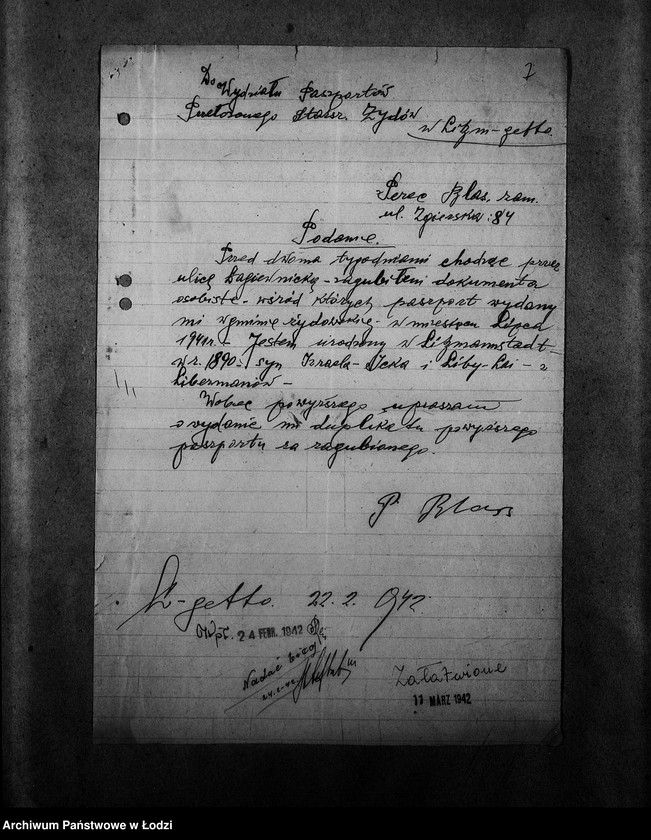 7
Do Wydziału Paszportów
Przełożonego Starsz. Żydów
w Litzm-getto.
Perec Blas. zam.
ul. Zgierska 84
Podanie.
Przed dwoma tygodniami chodząc przez
ulicę Łagiewnicką - zagubiłem dokumenta
osobiste - wśród których paszport wydany
mi w gminie żydowskiej - w miesiącu Lipca
1941 r. - Jestem urodzony w Litzmannstadt -
w r. 1890. syn Izraela-Icka i Liby-Lai - z
Libermanów -
Wobec powyższego upraszam
o wydanie mi duplikatu powyższego
paszportu za zagubionego.
P. Blass
L-getto. 22. 2. 942.
24 FEBR. 1942
Nadać bieg
24.2.42
Załatwione
11 MÄRZ 1942
Archiwum Państwowe w Łodzi